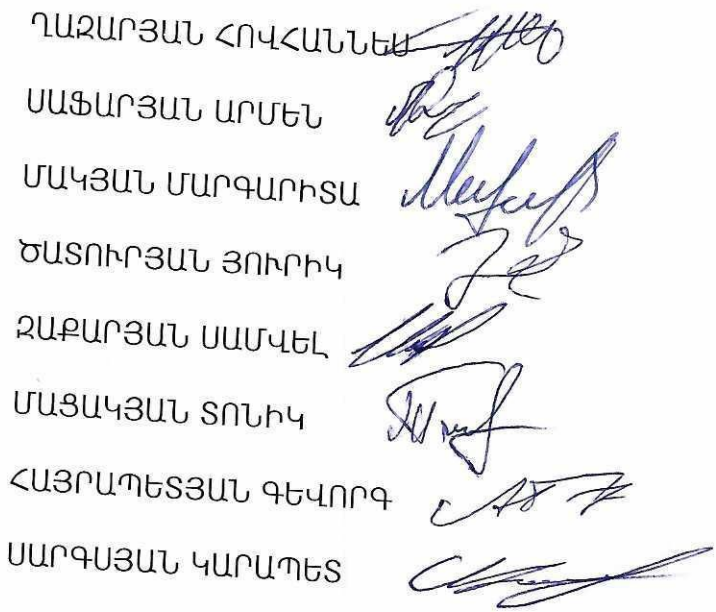 ՂԱԶԱՐՅԱՆ ՀՈՎՀԱՆՆԵՍ
ՍԱՖԱՐՅԱՆ ԱՐՄԵՆ
ՄԱԿՅԱՆ ՄԱՐԳԱՐԻՏԱ
ԾԱՏՈՒՐՅԱՆ ՅՈՒՐԻԿ
ԶԱՔԱՐՅԱՆ ՍԱՄՎԵԼ
ՄԱՑԱԿՅԱՆ ՏՈՆԻԿ
ՀԱՅՐԱՊԵՏՅԱՆ ԳԵՎՈՐԳ
ՍԱՐԳՍՅԱՆ ԿԱՐԱՊԵՏ